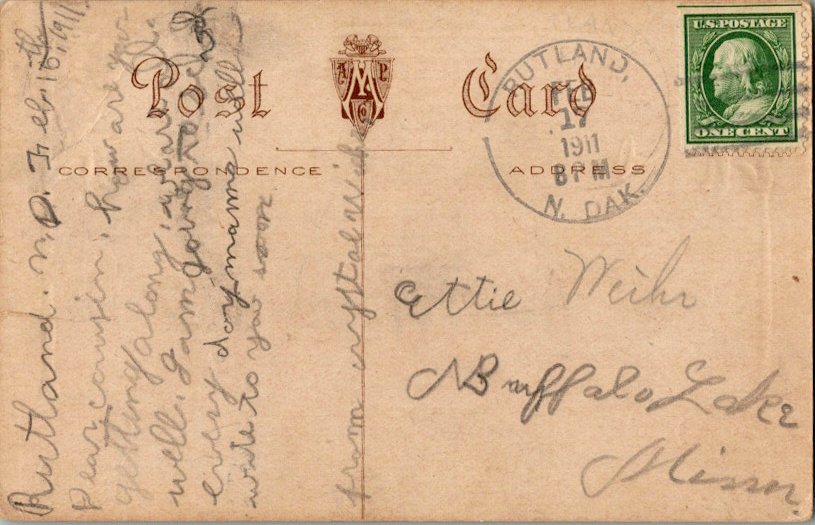 Post Card
A M P
Co
CORRESPONDENCE
ADDRESS
U.S. POSTAGE
ONE CENT
RUTLAND,
FEB
17
1911
8 PM
N. DAK.
Rutland. N.D. Feb 16th, 1911
Dear cousin, how are you
getting along, we are all
well, I am going to school
every day mamma will
write to you soon
from crystal
Ettie Weihr
Buffalo Lake
Minn.